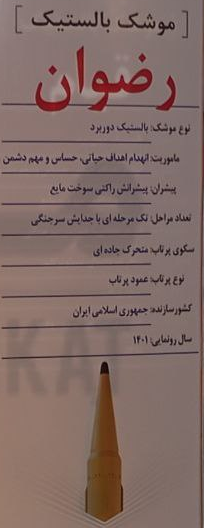 [ موشک بالستیک ]
رضوان
نوع موشک: بالستیک دوربرد
ماموریت: انهدام اهداف حیاتی، حساس و مهم دشمن
پیشران: پیشرانش راکتی سوخت مایع
تعداد مراحل: تک مرحله ای با جدایش سرجنگی
سکوی پرتاب: متحرک جاده ای
نوع پرتاب: عمود پرتاب
کشور سازنده: جمهوری اسلامی ایران
سال رونمایی: ۱۴۰۱